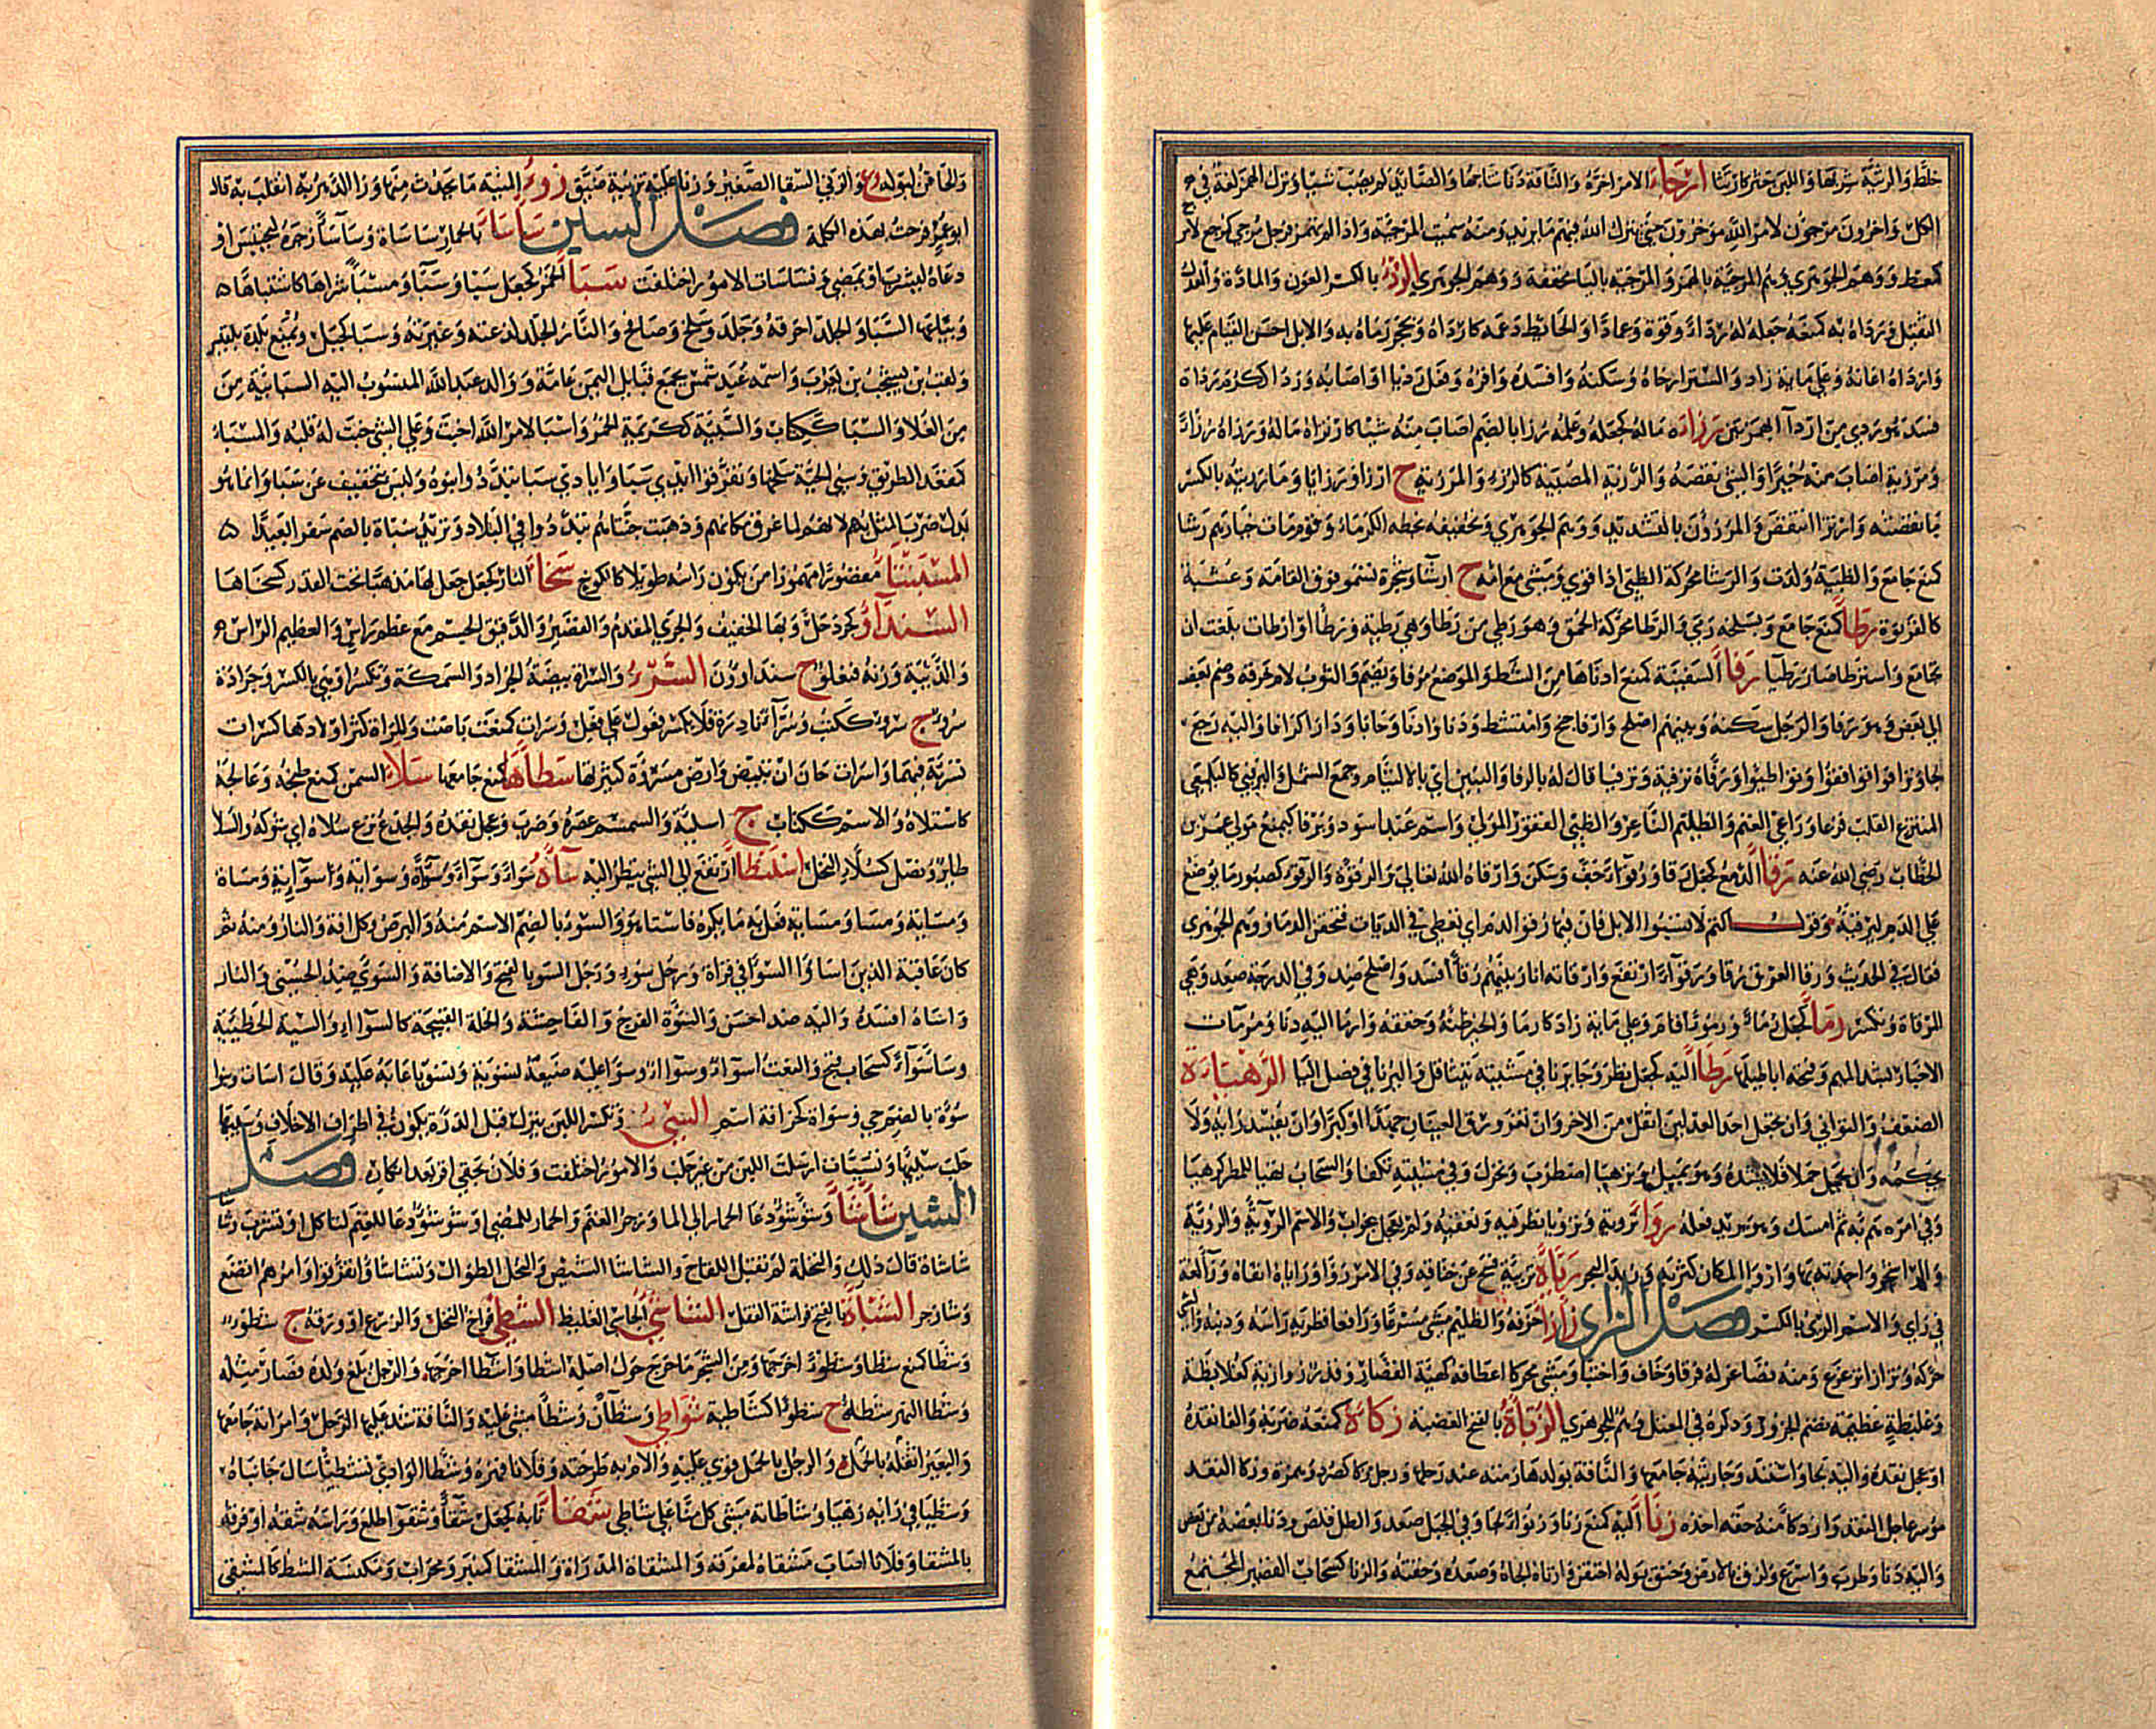 خلط والرثية شربها واللبن خثر كارتثا ارجاء الامر اخره والناقة دنا نتاجها والصايد لم يصب شيا وترك الهمز لغة في
الكل واخرون مرجون لامر الله مؤخرون حتى ينزل الله فيهم ما يريد ومنه سميت المرجئة واذا لم تهمز فرجل مرجي
كمعط ووهم الجوهري وهم المرجئة بالهمز والمرجية بالياء مخففة ووهم الجوهري الردء بالكسر العون والمادة والعدل
الثقيل وردأه به كمنعه جعله له ردءا وقوة وعمادا والحائط دعمه كارداه وبحجر رماه به والابل احسن القيام عليها
وارداه اعانه وعلى مائة زاد والستر ارخاه وسكنه وافسده واقره وفعل رديا او اصابه وردا ككرم رداءة
فسد فهو ردي من اردآ بهمزتين رزاه ماله كجعله وعلمه رزا بالضم اصاب منه شيا كارتزاه ماله ورزاه رزءا
ومرزية اصاب منه خيرا والشي نقصه والرزية المصيبة كالرزء والمرزية ج ارزا ورزايا وما رزيته بالكسر
ما نقصته وارتزا انتقص والمرزؤن بالتشديد ووهم الجوهري في تخفيفه بخطه الكرماء وقوم مات خيارهم رشا
كمنع جامع والظبية ولدت والرشا محركة الظبي اذا قوي ومشى مع امه ج ارشا وشجرة تسمو فوق القامة وعشبة
كالقرنوة رطا كمنع جامع وبسلحه رمى والرطا محركة الحمق وهو رطي من رطا وهي رطية ورطا وارطات بلغت ان
تجامع واسترطا صار رطيا رفا السفينة كمنع ادناها من الشط والموضع مرفا ويضم والثوب لام خرقه وضم بعضه
الى بعض وهو رفا والرجل سكنه وبينهم اصلح وارفا جنح وامتشط ودنا وادنا وحابا ودارا كرافا واليه
لجا وترافوا توافقوا وتواطئوا ورفاه ترفية وترفيا قال له بالرفا والبنين اي بالالتئام وجمع الشمل واليرفئي كاليلمعي
المنتزع القلب فزعا وراعي الغنم والظليم النافر والظبي القفوز المولي واسم عبد اسود ويرفا كيمنع مولى عمر بن
الخطاب رضي الله عنه رقا الدمع كجعل رقا ورقوءا جف وسكن وارقاه الله تعالى والرقوء كصبور ما يوضع
على الدم ليرقئه وقول اكثم لا تسبوا الابل فان فيها رقوء الدم اي تعطى في الديات فتحقن الدما ووهم الجوهري
فقال في الحديث ورقا العرق رقا ورقوءا ارتفع وارقاته انا وبينهم رقا افسد واصلح ضد وفي الدرجة صعد وهي
المرقاة وتكسر رما كجعل رما ورموءا اقام وعلى مائة زاد كارما والخبر ظنه وحققه وارما اليه دنا ومرمات
الاخبار بشد الميم وفتحه اباطيلها رنا اليه كجعل نظر وجا يرنا في مشيته يتثاقل واليرنا في فصل اليا الرهياة
الضعف والتواني وان تجعل احد العدلين اثقل من الاخر وان تغرورق العينان جهدا او كبرا وان يفسد رايه ولا
يحكمه وان يحمل حملا فلا يشده وهو يميل وترهيا اضطرب وتحرك وفي مشيته تكفا والسحاب تهيا للمطر كرهيا
وفي امره هم به ثم امسك وهو يريد فعله روا تروية وترويا نظر فيه وتعقبه ولم يعجل بجواب والاسم الروية والروية
والرا شجر واحدته بها واروا المكان كثر به وزبد البحر رياه تريية فسح عن خناقه وفي الامر روا وراياه اتقاه وراء لغة
في راى والاسم الرئ بالكسر فصل الزاي زازا خوفه والظليم مشى مسرعا ورافعا قطريه راسه وذنبه والشي
حركه وتزازا تزعزع ومنه تصاغر له فرقا وخاف واختبا ومشى محركا اعطافه كهيئة القصار وقدر زوازية كعلابطة
وعلبطة عظيمة تضم الجزور وذكره في المعتل وهم للجوهري الزباة بالفتح الغضبة زكاه كمنعه ضربه والفا نقده
او عجل نقده واليه لجا واستند وجاريته جامعها والناقة بولدها رمته عند رجلها ورجل زكا كصرد وهمزة وزكا النقد
موسر عاجل النقد وازدكا منه حقه اخذه زنا اليه كمنع زنا وزنوءا لجا وفي الجبل صعد والظل قلص ودنا بعضه من بعض
واليه دنا وطرب واسرع ولزق بالارض وخنق بوله احتقن وازناه الجاه وصعده وحقنه والزنا كسحاب القصير المجتمع
والحاقن لبوله وزنا عليه تزنية ضيق زوء المنية ما يحدث منها وزا الدهر به انقلب به قال
ابو عمرو فرحت بهذه الكلمة فصل السين ساسا بالحمار ساساة وساسا زجره ليحتبس او
دعاه ليشرب او يمضي وتساسات الامور اختلفت سبا الخمر كجعل سبا وسبا ومسبا شراها كاستباها
وبياعها السبا والجلد احرقه وجلد وسلخ وصافح والنار الجلد لذعته وغيرته وسبا كجبل ويمنع بلدة بلقيس
ولقب بن يشجب بن يعرب واسمه عبد شمس يجمع قبائل اليمن عامة ووالد عبد الله المنسوب اليه السبائية من
من الغلاة والسبا ككتاب والسبية ككريمة الخمر واسبا لامر الله اخبت وعلى الشي خبت له قلبه والمسبا
كمقعد الطريق وسبي الحية سلخها وتفرقوا ايدي سبا وايادي سبا تبددوا بنوه وليس بتخفيف عن سبا وانما هو
بدل ضرب المثل بهم لانهم لما غرق مكانهم وذهبت جناتهم تبددوا في البلاد وتريد سباة بالضم سفرا بعيدا
المسبنتا مقصورا مهموزا من يكون راسه طويلا كالكوخ سخا النار كجعل جعل لها مذهبا تحت القدر كسخاها
السندأو كجردحل وبها الخفيف والجري المقدم والقصير والدقيق الجسم مع عظم راس والعظيم الراس
والذئبة وزنه فنعلو ج سنداوون السرء والسراة بيضة الجراد والسمكة وتكسر او هي بالكسر وجرادة
سروء ج سرء ككتب وسرأ نادرة فلا يكسر فعول على فعل وسرات كمنعت باضت والمراة كثر اولادها كسرات
تسرية فيهما واسرات حان ان تبيض وارض مسروة كثيرتها سطاها كمنع جامعها سلا السمن كمنع طبخه وعالجه
كاستلاه والاسم ككتاب ج اسلية والسمسم عصره وضرب وعجل نقده والجذع نزع سلاه اي شوكه والسلا
طائر ونصل كسلاء النخل اسلنطا ارتفع الى الشي ينظر اليه ساه سواءا وسواء وسواءة وسواية وسوائية ومساة
ومساية ومسا ومسائية فعل به ما يكره فاستا هو والسوء بالضم الاسم منه والبرص وكل افة والنار ومنه ثم
كان عاقبة الذين اساوا السواى في قراة ورجل سوء ورجل السوء بالفتح والاضافة والسوى ضد الحسنى والنار
واساه افسده واليه ضد احسن والسوة الفرج والفاحشة والخلة القبيحة كالسوآء والسيئة الخطيئة
وسا سواء كسحاب قبح والنعت اسوا وسوآ وسوا عليه صنيعه تسوية وتسويا عابه عليه وقال اسات
سوة بالضم حي وسواة كخرافة اسم السيء وتكسر اللبن ينزل قبل الدرة يكون في اطراف الاخلاف وسياها
حلب سيئها وتسيات ارسلت اللبن من غير حلب والامور اختلفت وفلان بحقي اقر بعد انكار فصل
الشين شاشا وشؤشؤ دعا الحمار الى الما وزجر الغنم والحمار للمضي او شؤشؤ دعا للغنم لتاكل او تشرب وشا
شاشاة قال ذلك والنخلة لم تقبل اللقاح والشاشا الشيص والنخل الطوال وتشاشا تفرقوا وامرهم اتضع
وشا زجر الشباة بالفتح فراشة القفل الشاسئ الجاسي الغليظ الشطء فراخ النخل والزرع او ورقه ج شطوء
وشطا كمنع شطا وشطوءا اخرجها ومن الشجر ما خرج حول اصله اشطا واشطا اخرجها والرجل بلغ ولده فصار مثله
وشطا النهر شطه ج شطوء كشاطئه ج شواطئ وشطآن وشطا مشى عليه والناقة شد عليها الرحل وامراته جامعها
والبعير اثقله بالحمل والرجل بالحمل قوي عليه والام به طرحته وفلانا قهره وشطا الوادي تشطيا سال جانباه
وشطيا في رايه رهيا وشاطاته مشى كل منا على شاطئ شقا نابه كجعل شقا وشقوءا طلع وراسه شقه او فرقه
بالمشقا وفلانا اصاب مشقاه لمفرقه والمشقاة المدراة والمشقا كمنبر ومحراب ومكنسة المشط كالمشقى